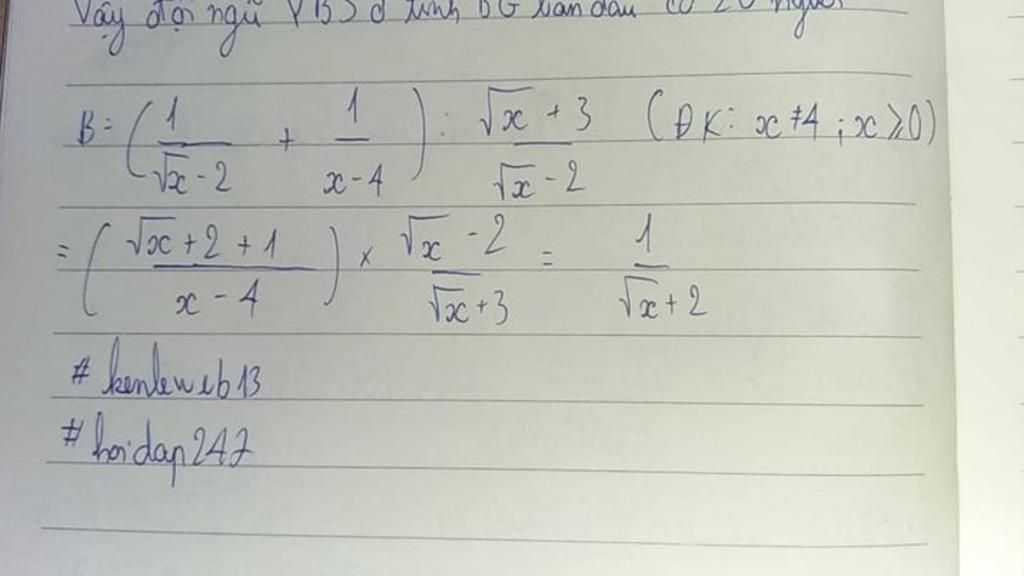 Vậy đội ngũ YBS ở tỉnh BG ban đầu có 20 người
B = (1/(√x - 2) + 1/(x - 4)) : (√x + 3)/(√x - 2) (ĐK: x ≠ 4 ; x ≥ 0)
= ((√x + 2 + 1)/(x - 4)) × (√x - 2)/(√x + 3) = 1/(√x + 2)
# kenleweb13
# hoidap247